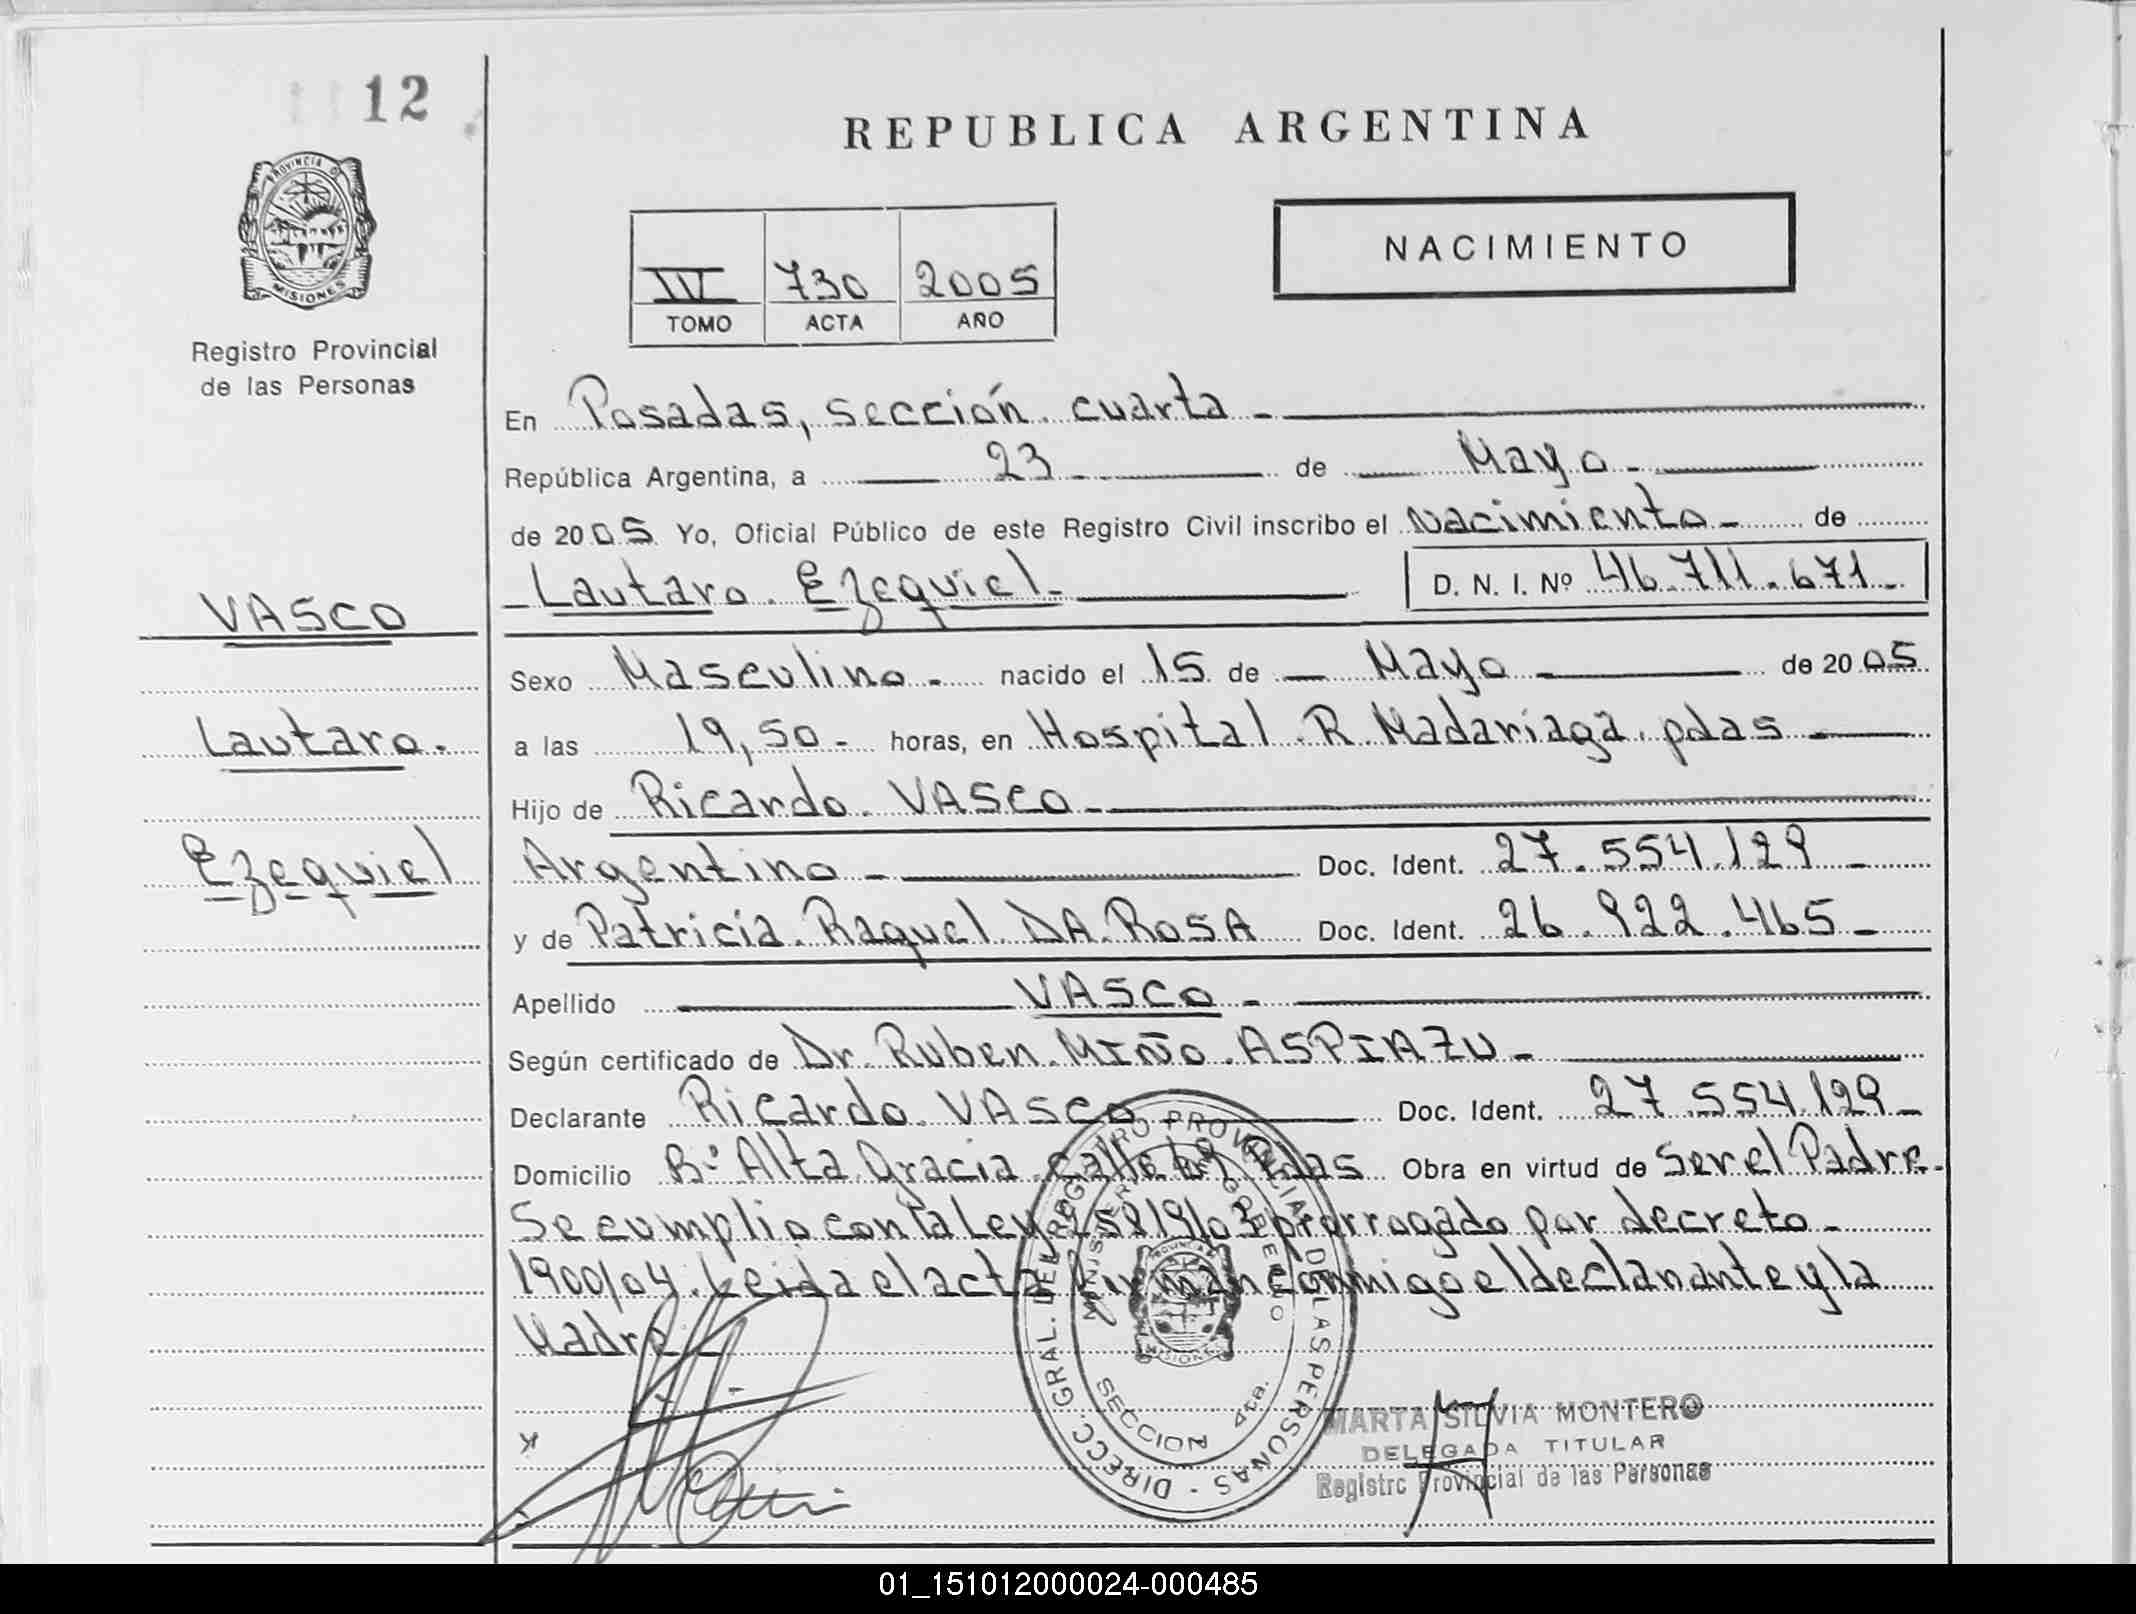 12
REPUBLICA ARGENTINA
PROVINCIA DE
MISIONES
NACIMIENTO
IV 730 2005
TOMO ACTA AÑO
Registro Provincial
de las Personas
En Posadas, sección cuarta -
República Argentina, a 23 - de Mayo -
de 2005 Yo, Oficial Público de este Registro Civil inscribo el Nacimiento - de
- Lautaro Ezequiel - D. N. I. Nº 46.711.671 -
VASCO
Sexo Masculino - nacido el 15 de Mayo - de 2005
Lautaro.
a las 19,50 - horas, en Hospital R. Madariaga pdas -
Hijo de Ricardo VASCO -
Ezequiel
Argentino - Doc. Ident. 27.554.129 -
y de Patricia Raquel DA ROSA Doc. Ident. 26.922.465 -
Apellido VASCO -
Según certificado de Dr. Ruben MIÑO ASPIAZU -
Declarante Ricardo VASCO Doc. Ident. 27.554.129 -
Domicilio Bº Alta Gracia calle Pdas Obra en virtud de Ser el Padre -
Se cumplio con la Ley 25819/03 prorrogado por decreto -
1900/04. Leida el acta firman conmigo el declarante y la
Madre -
DIRECC. GRAL. DEL REGISTRO PROVINCIAL DE LAS PERSONAS -
MINISTERIO DE GOBIERNO
PROVINCIA DE
MISIONES
SECCION 4ta.
MARTA SILVIA MONTERO
DELEGADA TITULAR
Registro Provincial de las Personas
01_151012000024-000485